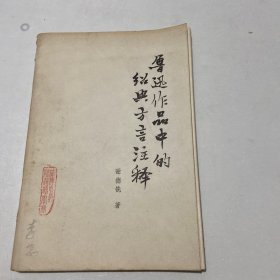 鲁迅作品中的
绍兴方言注释
谢德铣 著